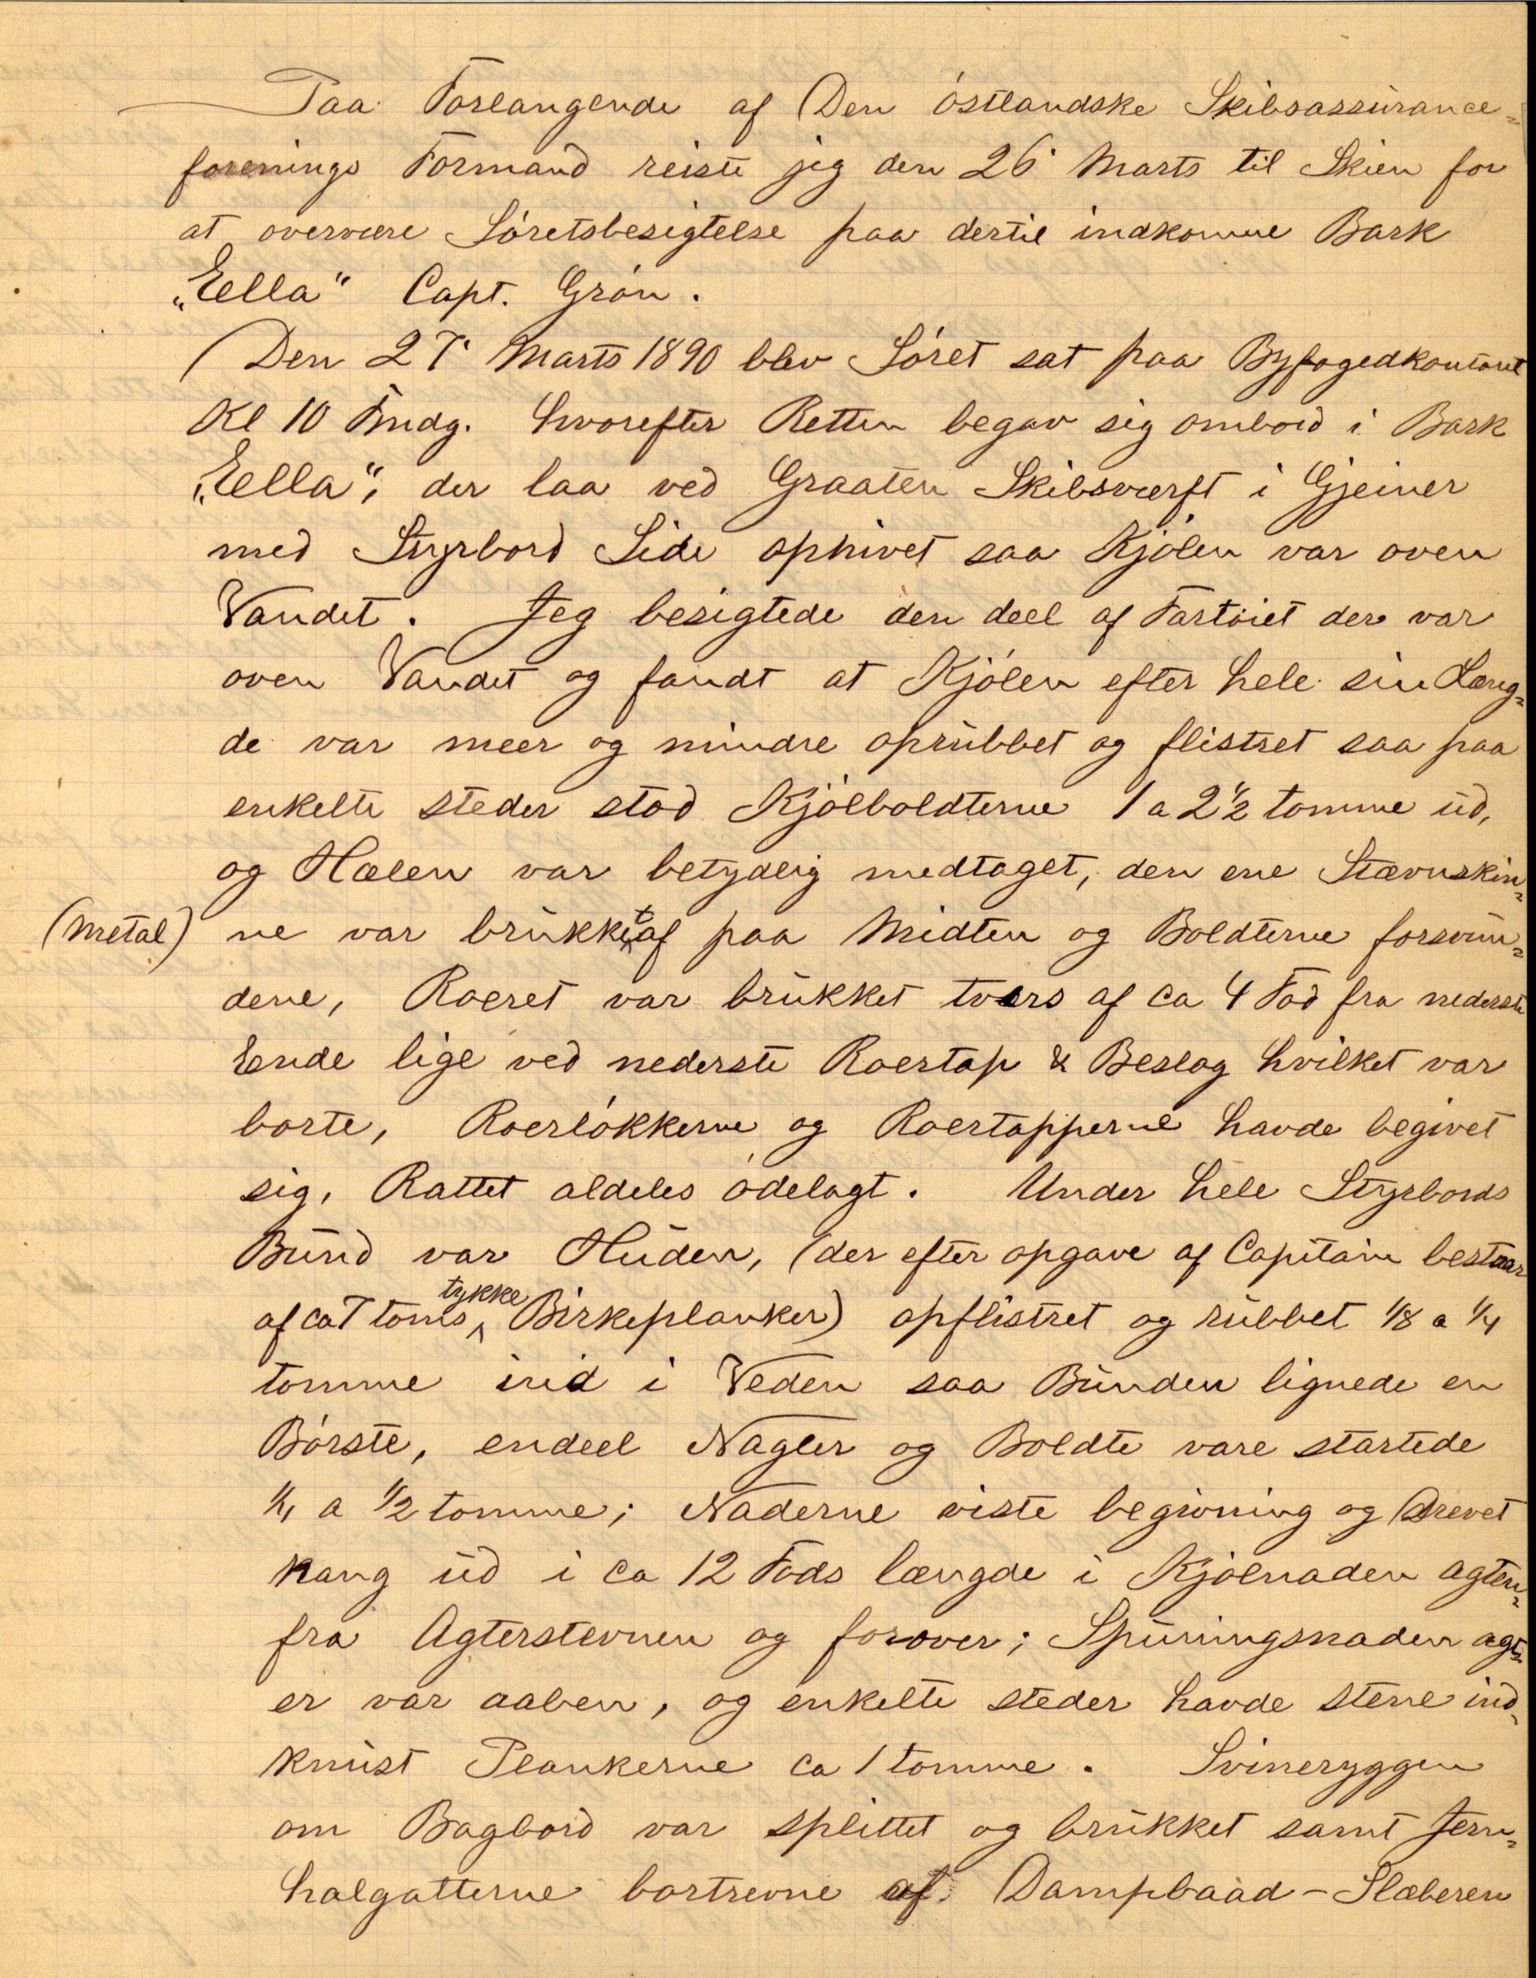 Paa Forlangende af Den östlandske Skibsassurance=
forenings Formand reiste jeg den 26' Marts til Skien for
at overvære Söretsbesigtelse paa dertil indkomne Bark
„Eella" Capt. Grön.
Den 27' Marts 1890 blev Söret sat paa Byfogedkontoret
Kl 10 Fmdg. hvorefter Retten begav sig ombord i Bark
„Eella", der laa ved Graaten Skibsværft i Gjeiner
med Styrbord Side ophivet saa Kjölen var oven
Vandet. Jeg besigtede den deel af Fartöiet der var
oven Vandet og fandt at Kjölen efter hele sin Læng=
de var meer og mindre oprubbet og flistret saa paa
enkelte steder stod Kjölboldterne 1 a 2 1/2 tomme ud,
og Hælen var betydelig medtaget, den ene Stævnskin=
(Metal) ne var brukket af paa Midten og Boldterne forsvun=
dene, Roeret var brukket tvers af ca 4 Fod fra nederste
Ende lige ved nederste Roertap & Beslag hvilket var
borte, Roerlökkerne og Roertapperne havde begivet
sig, Rattet aldeles ödelagt. Under hele Styrbords
Bund var Huden, (der efter opgave af Capitain bestaar
af ca 7 toms tykke Birkeplanker) opflistret og rubbet 1/8 a 1/4
tomme ind i Veden saa Bunden lignede en
Börste, endeel Nagler og Boldte vare startede
1/4 a 1/2 tomme; Naderne viste begivning og Drevet
hang ud i ca 12 Fods længde i Kjölnaden agten=
fra Agterstevnen og forover; Spuningsnaden agt=
er var aaben, og enkelte steder havde stene ind=
knust Plankerne ca 1 tomme. Svineryggen
om Bagbord var splittet og brukket samt Jern=
halgatterne bortrevne af Dampbaad-Slæberen